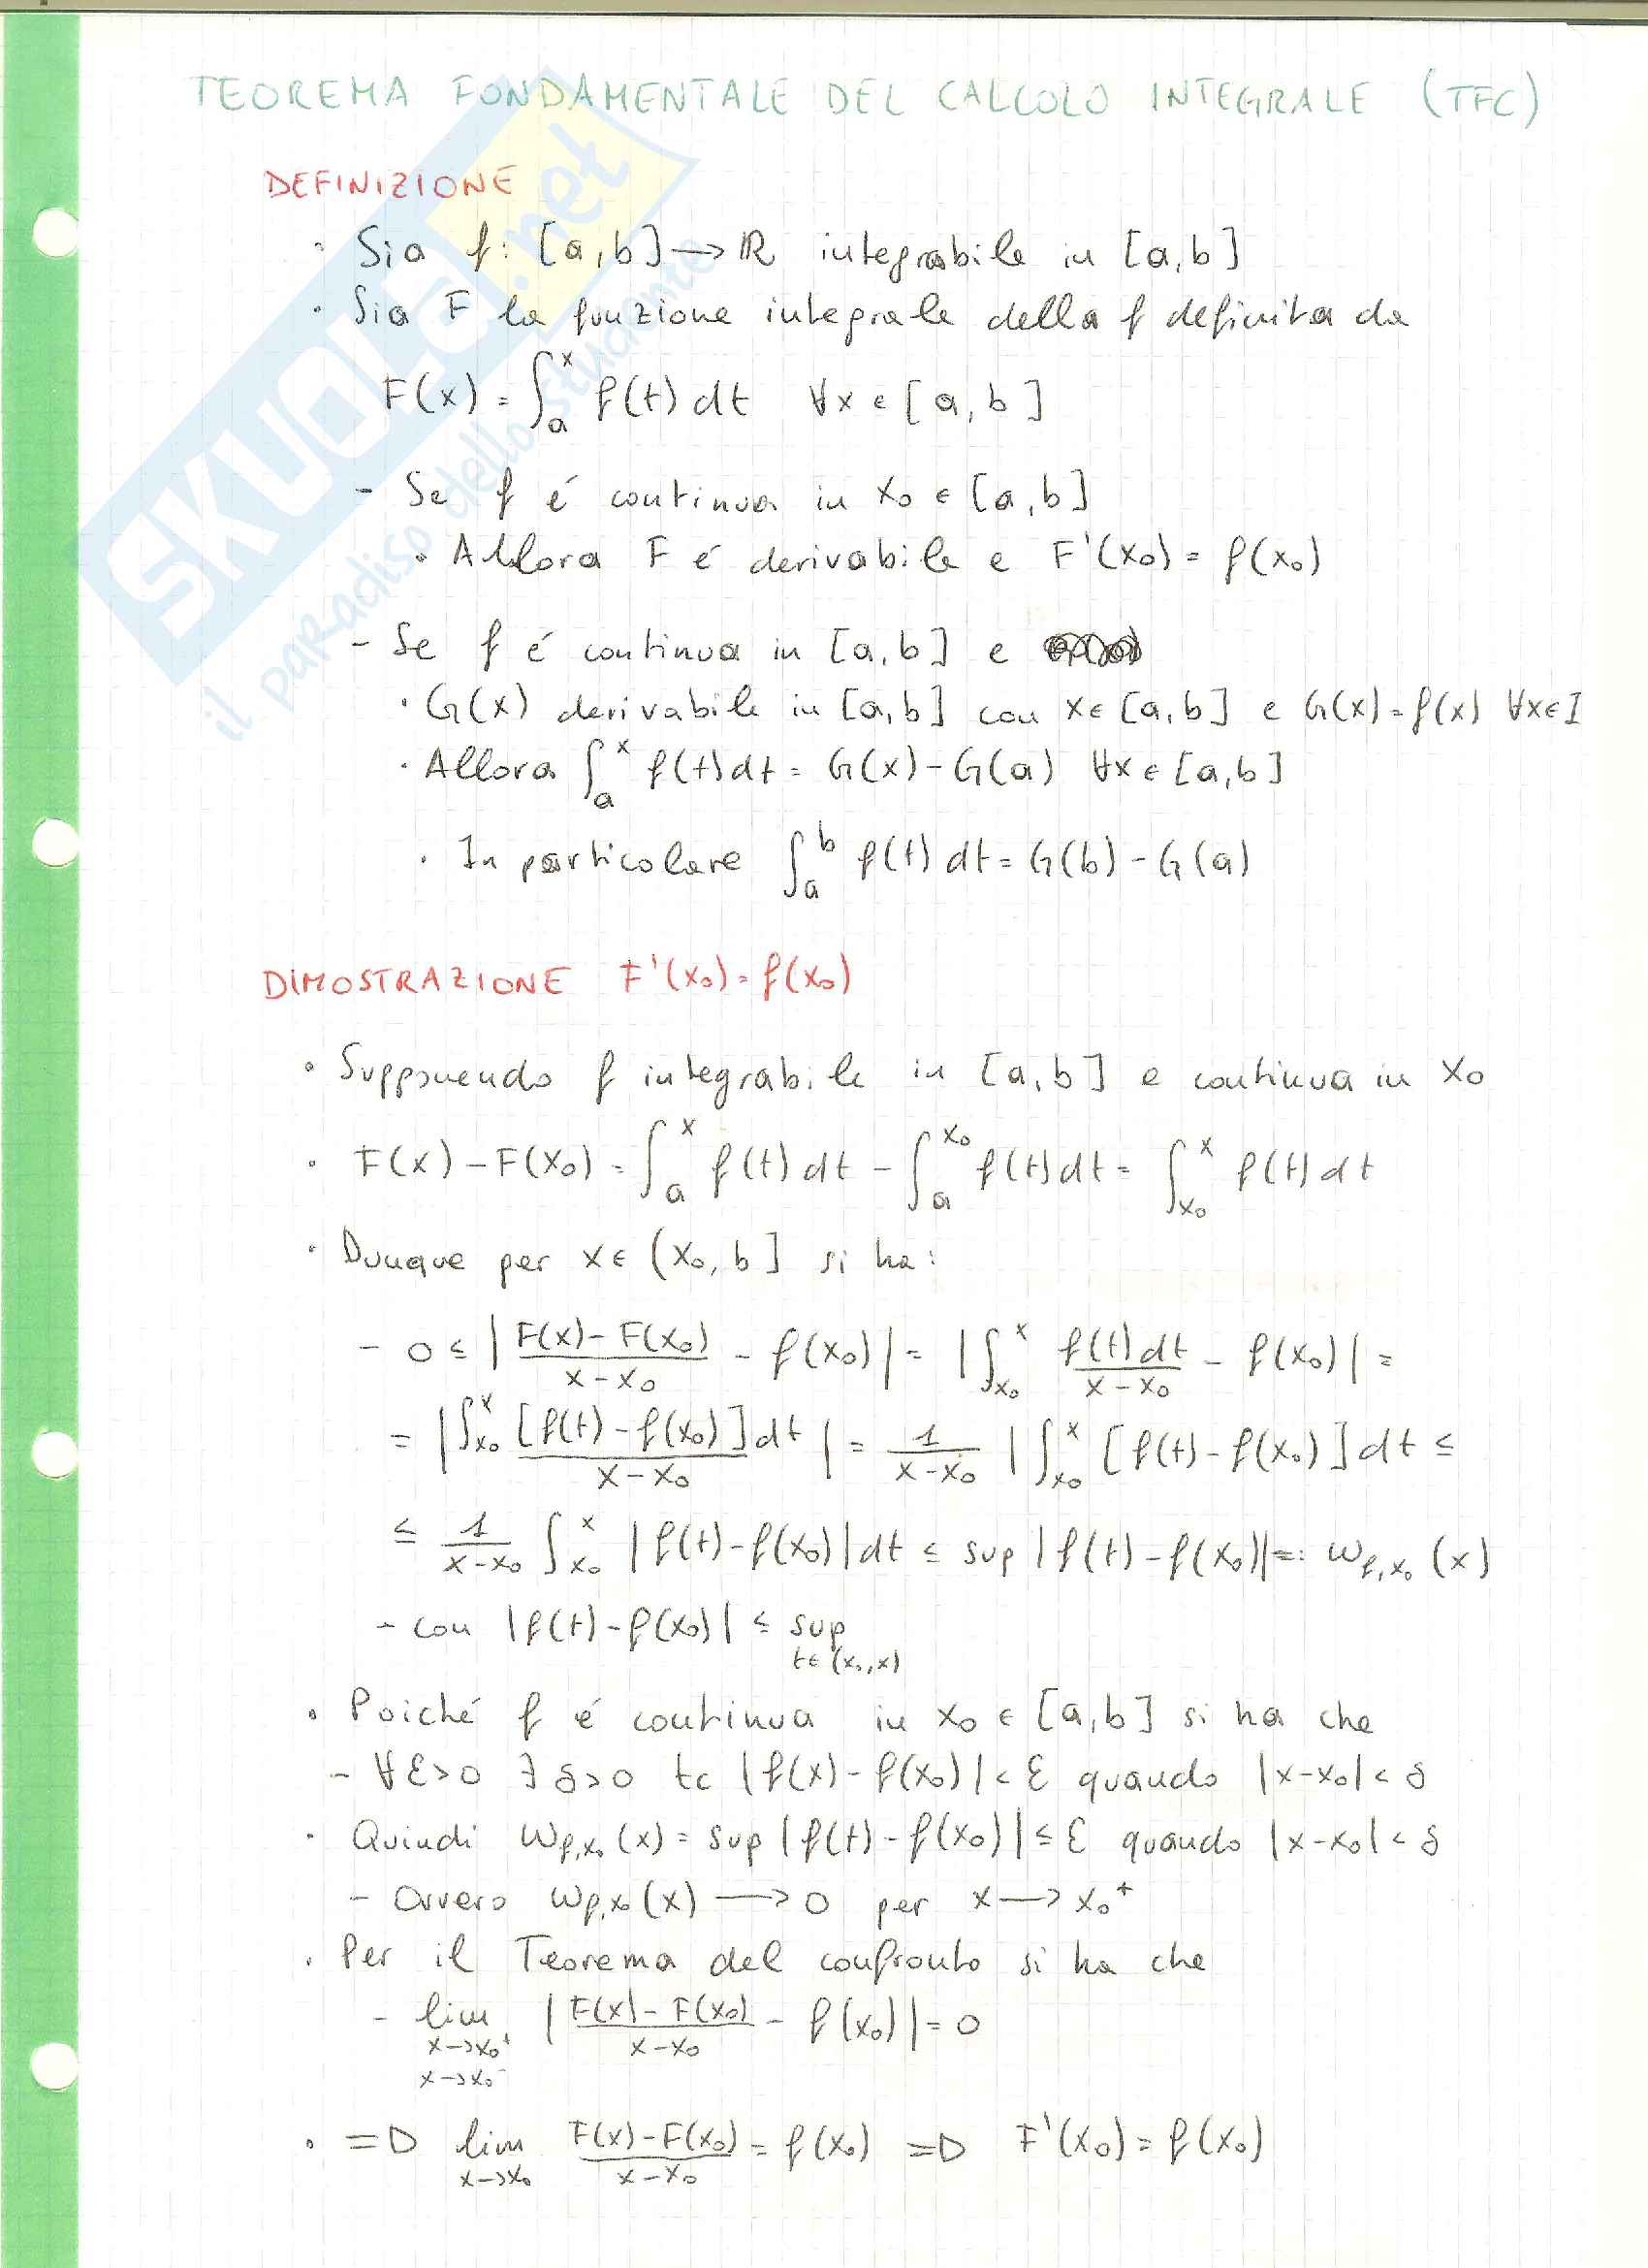 TEOREMA FONDAMENTALE DEL CALCOLO INTEGRALE (TFC)
DEFINIZIONE
· Sia f: [a,b] → ℝ integrabile in [a,b]
· Sia F la funzione integrale della f definita da
F(x) = ∫ₐˣ f(t) dt ∀x ∈ [a,b]
- Se f é continua in x₀ ∈ [a,b]
· Allora F é derivabile e F'(x₀) = f(x₀)
- Se f é continua in [a,b] e
· G(x) derivabile in [a,b] con x ∈ [a,b] e G(x) = f(x) ∀x∈I
· Allora ∫ₐˣ f(t)dt = G(x) - G(a) ∀x ∈ [a,b]
· In particolare ∫ₐᵇ f(t) dt = G(b) - G(a)
DIMOSTRAZIONE F'(x₀) = f(x₀)
· Supponendo f integrabile in [a,b] e continua in x₀
· F(x) - F(x₀) = ∫_a^x f(t) dt - ∫_a^{x₀} f(t)dt = ∫_{x₀}^x f(t) dt
· Dunque per x ∈ (x₀, b] si ha:
- 0 ≤ | (F(x) - F(x₀))/(x - x₀) - f(x₀) | = | ∫_{x₀}^x f(t)dt/(x - x₀) - f(x₀) | =
= | ∫_{x₀}^x [f(t) - f(x₀)]dt/(x - x₀) | = 1/(x-x₀) | ∫_{x₀}^x [f(t) - f(x₀)] dt ≤
≤ 1/(x-x₀) ∫_{x₀}^x |f(t) - f(x₀)| dt ≤ sup |f(t) - f(x₀)| =: ω_{f,x₀}(x)
- con |f(t) - f(x₀)| ≤ sup_{t∈(x₀,x)}
· Poiché f é continua in x₀ ∈ [a,b] si ha che
- ∀ε>0 ∃δ>0 tc |f(x) - f(x₀)| < ε quando |x-x₀| < δ
· Quindi ω_{f,x₀}(x) = sup |f(t) - f(x₀)| ≤ ε quando |x-x₀| < δ
- Ovvero ω_{f,x₀}(x) → 0 per x → x₀⁺
· Per il Teorema del confronto si ha che
- lim_{x→x₀⁺ x→x₀⁻} | (F(x) - F(x₀))/(x-x₀) - f(x₀) | = 0
· =D lim_{x→x₀} (F(x) - F(x₀))/(x-x₀) = f(x₀) =D F'(x₀) = f(x₀)
SKUOLA.net
il paradiso dello studente